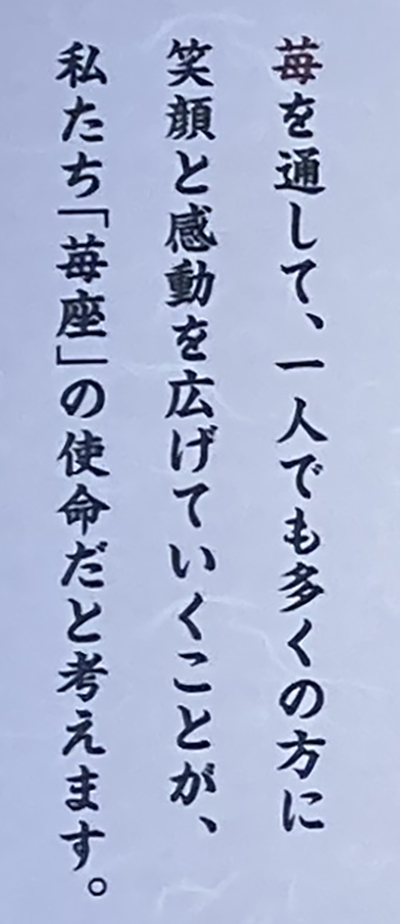 苺を通して、一人でも多くの方に
笑顔と感動を広げていくことが、
私たち「苺座」の使命だと考えます。